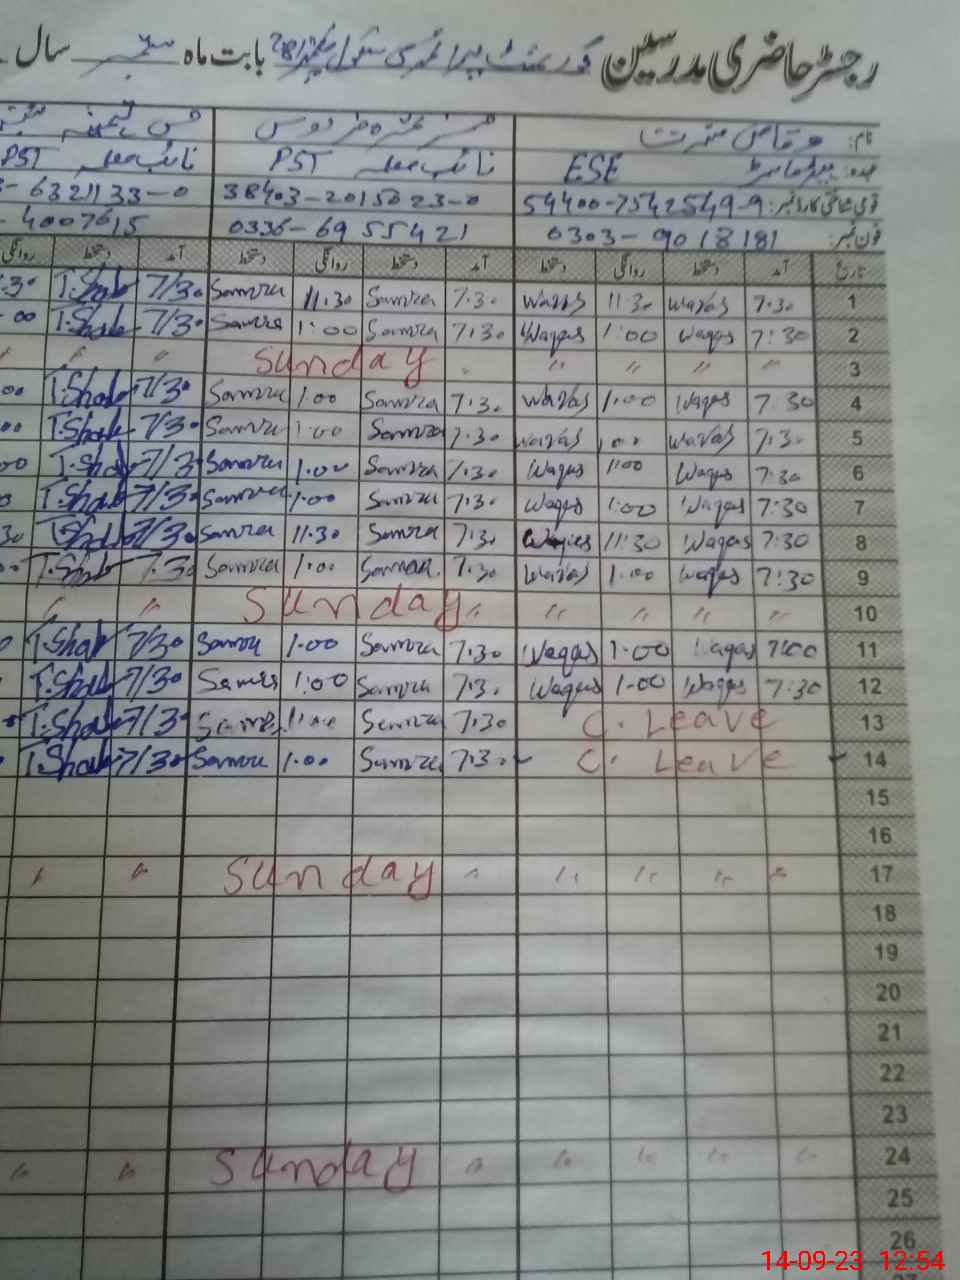 رجسٹر حاضری مدرسین گورنمنٹ پرائمری سکول بابت ماہ ستمبر سال
نام: وقاص مسز ثمرہ فردوس مس
عہدہ: ہیڈ ماسٹر ESE نائب معلمہ PST نائب معلمہ PST
قومی شناختی کارڈ نمبر: 54400-7542549-9 38403-2015023-0 6321133-0
فون نمبر: 0303-9018181 0336-6955421 4007615
تاریخ آمد دستخط روانگی دستخط آمد دستخط روانگی دستخط آمد دستخط روانگی
1 7.30 Waqas 11.30 Waqas 7.30 Samra 11.30 Samra 7/30 T.Shab .30
2 7:30 Waqas 1:00 Waqas 7.30 Samra 1:00 Samra 7/30 T.Shab 00
3 " " " " Sunday " "
4 7.30 Waqas 1.00 Waqas 7.30 Samra 1.00 Samra 7/30 T.Shab 00
5 7.30 Waqas 1.00 Waqas 7.30 Samra 1.00 Samra 7/30 T.Shab 00
6 7.30 Waqas 1:00 Waqas 7.30 Samra 1.00 Samra 7/30 T.Shab 00
7 7:30 Waqas 1:00 Waqas 7.30 Samra 1.00 Samra 7/30 T.Shab 0
8 7:30 Waqas 11:30 Waqas 7.30 Samra 11.30 Samra 7/30 T.Shab 30
9 7:30 Waqas 1.00 Waqas 7.30 Samra 1.00 Samra 7.30 T.Shab
10 " " " " Sunday " " "
11 7:00 Waqas 1.00 Waqas 7.30 Samra 1.00 Samra 7/30 T.Shab 0
12 7:30 Waqas 1.00 Waqas 7.30 Samra 1:00 Samra 7/30 T.Shab
13 C. Leave 7.30 Samra 1.00 Samra 7/30 T.Shab
14 C. Leave 7.30 Samra 1.00 Samra 7/30 T.Shab
15
16
17 " " " " Sunday " " "
18
19
20
21
22
23
24 " " " " Sunday " " "
25
26
14-09-23 12:54